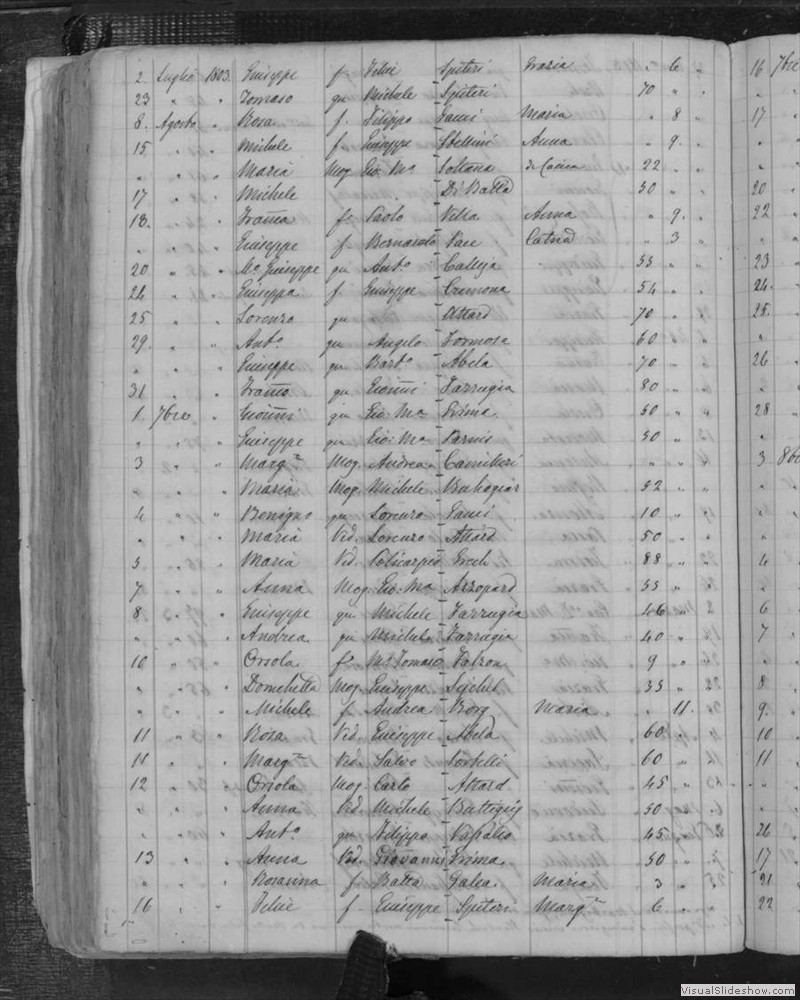 2 Luglio 1803. Giuseppe f. Felice Spiteri Grazia " 6 "
23 " " Tomaso qu Michele Spiteri 70 " "
8. Agosto " Rosa f. Filippo Gauci Maria " 8 "
15 " " Michele f Giuseppe Stellini Anna " 9. "
" " " Maria Mog Gio. Ma. Soltana 22 " "
17 " " Michele Di Batta 50 " "
18. " " f. Paolo Vella Anna " 9. "
" " " Giuseppe f Bernardo Pace " 3 "
20 " " Mo. Giuseppe qu Anto. Calleja 55 " "
24 " " Giuseppa f Giuseppe Cremona 54 " "
25 " " Lorenzo qu " Attard 70 " "
29. " " Anto. qu Angelo Formosa 60 " "
" " " Giuseppe qu Barto. Abela 70 " "
31 " " qu Farrugia 80 " "
1. 7bre " qu Gio. Ma. Grima. 50 " "
" " " Giuseppe qu Gio. Ma. Parnis 50 " "
3 " " Marg.ta Mog. Andrea Camilleri " " "
" " " Maria Mog. Michele Buhagiar 52 " "
4 " " Benigno qu Lorenzo Gauci 10 " "
" " " Maria Ved. Lorenzo Attard 50 " "
5 " " Maria Ved. Policarpio Grech 88 " "
7 " " Anna Mog. Gio. Ma. Azzopard 55 " "
8 " " Giuseppe qu Michele Farrugia 46 " "
" " " Andrea qu Michele Farrugia 40 " "
10 " " Orsola f. Mo. Tomaso 9 " "
" " " Domchetta Mog. Giuseppe 35 " "
" " " Michele f. Andrea Borg Maria " 11. "
11 " " Rosa Ved. Giuseppe Abela 60 " "
11 " " Marg.ta Ved. Salvo Portelli 60 " "
12 " " Orsola Mog. Carlo Attard 45 " "
" " " Anna Ved. Michele Buttigig 50 " "
" " " Anto. qu Filippo 45 " "
13 " " Anna Ved. Giovanni Grima. 50 " "
" " " Rosanna f Batta Galea Maria 3 " "
16 " " Felice f. Giuseppe Spiteri Marg.ta 6 " "
16 7bre
17
"
20
22
"
23
24.
25.
"
26
"
28
"
3 8b
"
"
4
"
6
7
"
8
9.
10
11
"
26
17
21
22
VisualSlideshow.com